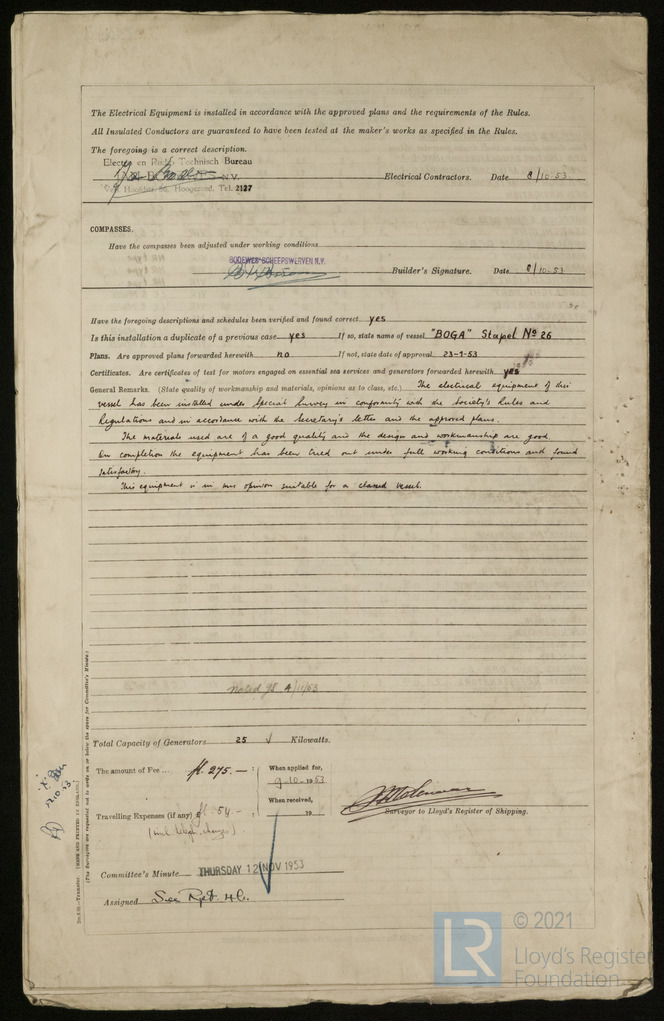 The Electrical Equipment is installed in accordance with the approved plans and the requirements of the Rules.
All Insulated Conductors are guaranteed to have been tested at the maker's works as specified in the Rules.
The foregoing is a correct description.
Electro en Radio Technisch Bureau
N.V.
Electrical Contractors. Date 8/10-53
Hoogezand. Tel. 2127
COMPASSES.
Have the compasses been adjusted under working conditions
BODEWES' SCHEEPSWERVEN N.V.
Builder's Signature. Date 8/10-53
Have the foregoing descriptions and schedules been verified and found correct yes
Is this installation a duplicate of a previous case yes If so, state name of vessel "BOGA" Stapel No 26
Plans. Are approved plans forwarded herewith no If not, state date of approval 23-1-53
Certificates. Are certificates of test for motors engaged on essential sea services and generators forwarded herewith yes
General Remarks. (State quality of workmanship and materials, opinions as to class, etc.) The electrical equipment of this
vessel has been installed under Special Survey in conformity with the Society's Rules and
Regulations and in accordance with the Secretary's letter and the approved plans.
The materials used are of a good quality and the design and workmanship are good.
On completion the equipment has been tried out under full working conditions and found
satisfactory.
This equipment is in our opinion suitable for a classed vessel.
noted 4/11/53
Total Capacity of Generators 25 Kilowatts.
The amount of Fee ... fl. 275.— :
When applied for,
9-10-1953
When received,
19
Travelling Expenses (if any) £ fl 54.- :
Surveyor to Lloyd's Register of Shipping.
Committee's Minute THURSDAY 12 NOV 1953
Assigned See Rpt. 4c.
(MADE AND PRINTED IN ENGLAND.)
(The Surveyors are requested not to write on or below the space for Committee's Minute.)
LR
© 2021
Lloyd's Register
Foundation